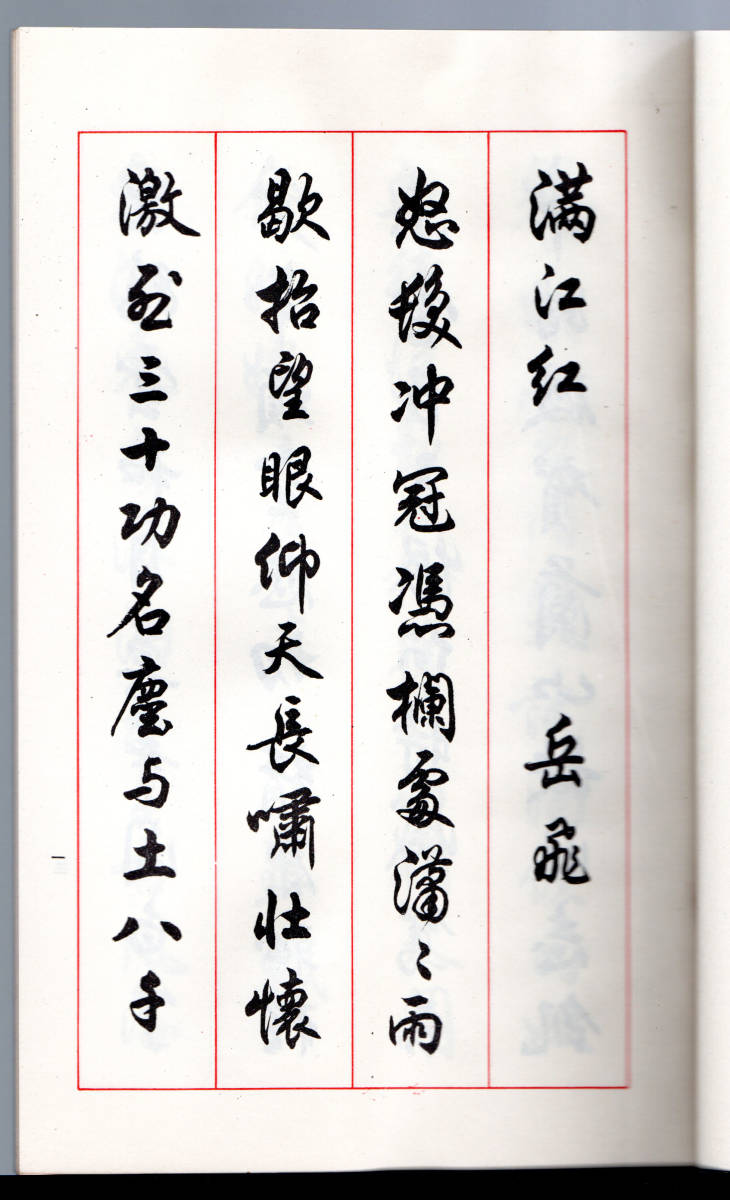 满江红 岳飛
怒髮冲冠憑欄處瀟〻雨
歇抬望眼仰天長嘯壯懷
激烈三十功名塵与土八千
一